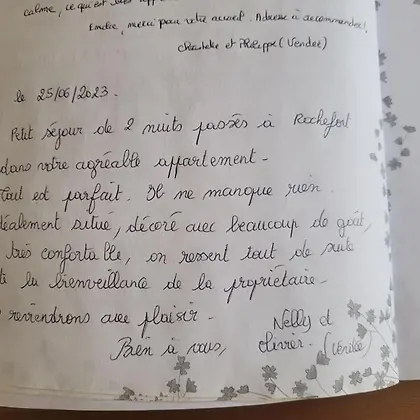 calme, ce qui est très
Emilie, merci pour votre accueil. Adresse à recommander!
et Philippe (Vendée)
le 25/06/2023.
Petit séjour de 2 nuits passés à Rochefort
dans votre agréable appartement -
Tout est parfait. Il ne manque rien.
déalement situé, décoré avec beaucoup de goût,
très confortable, on ressent tout de suite
la bienveillance de la propriétaire -
reviendrons avec plaisir -
Nelly et
Bien à vous, Olivier - (Vendée)